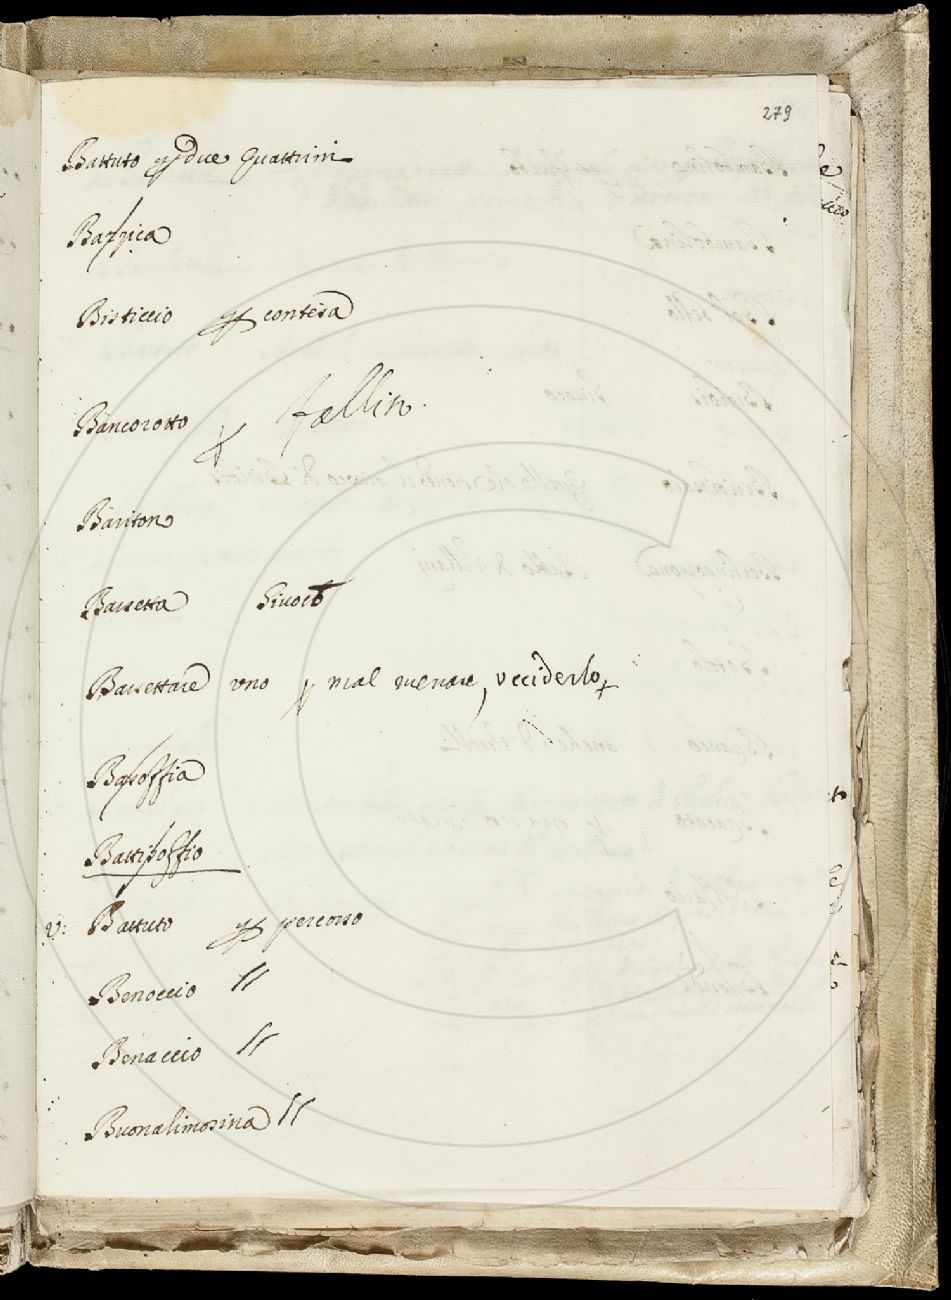 279
Battuto p due quattrini
Bassica
Bisticcio p contesa
Bancorotto p fallito.
Bariton
Bassetta Giuoco
Bassettare uno p mal menare, ucciderlo
Basoffia
Battisoffio
V: Battuto p percosso
Benoccio //
Benaccio //
Buonalimosina //